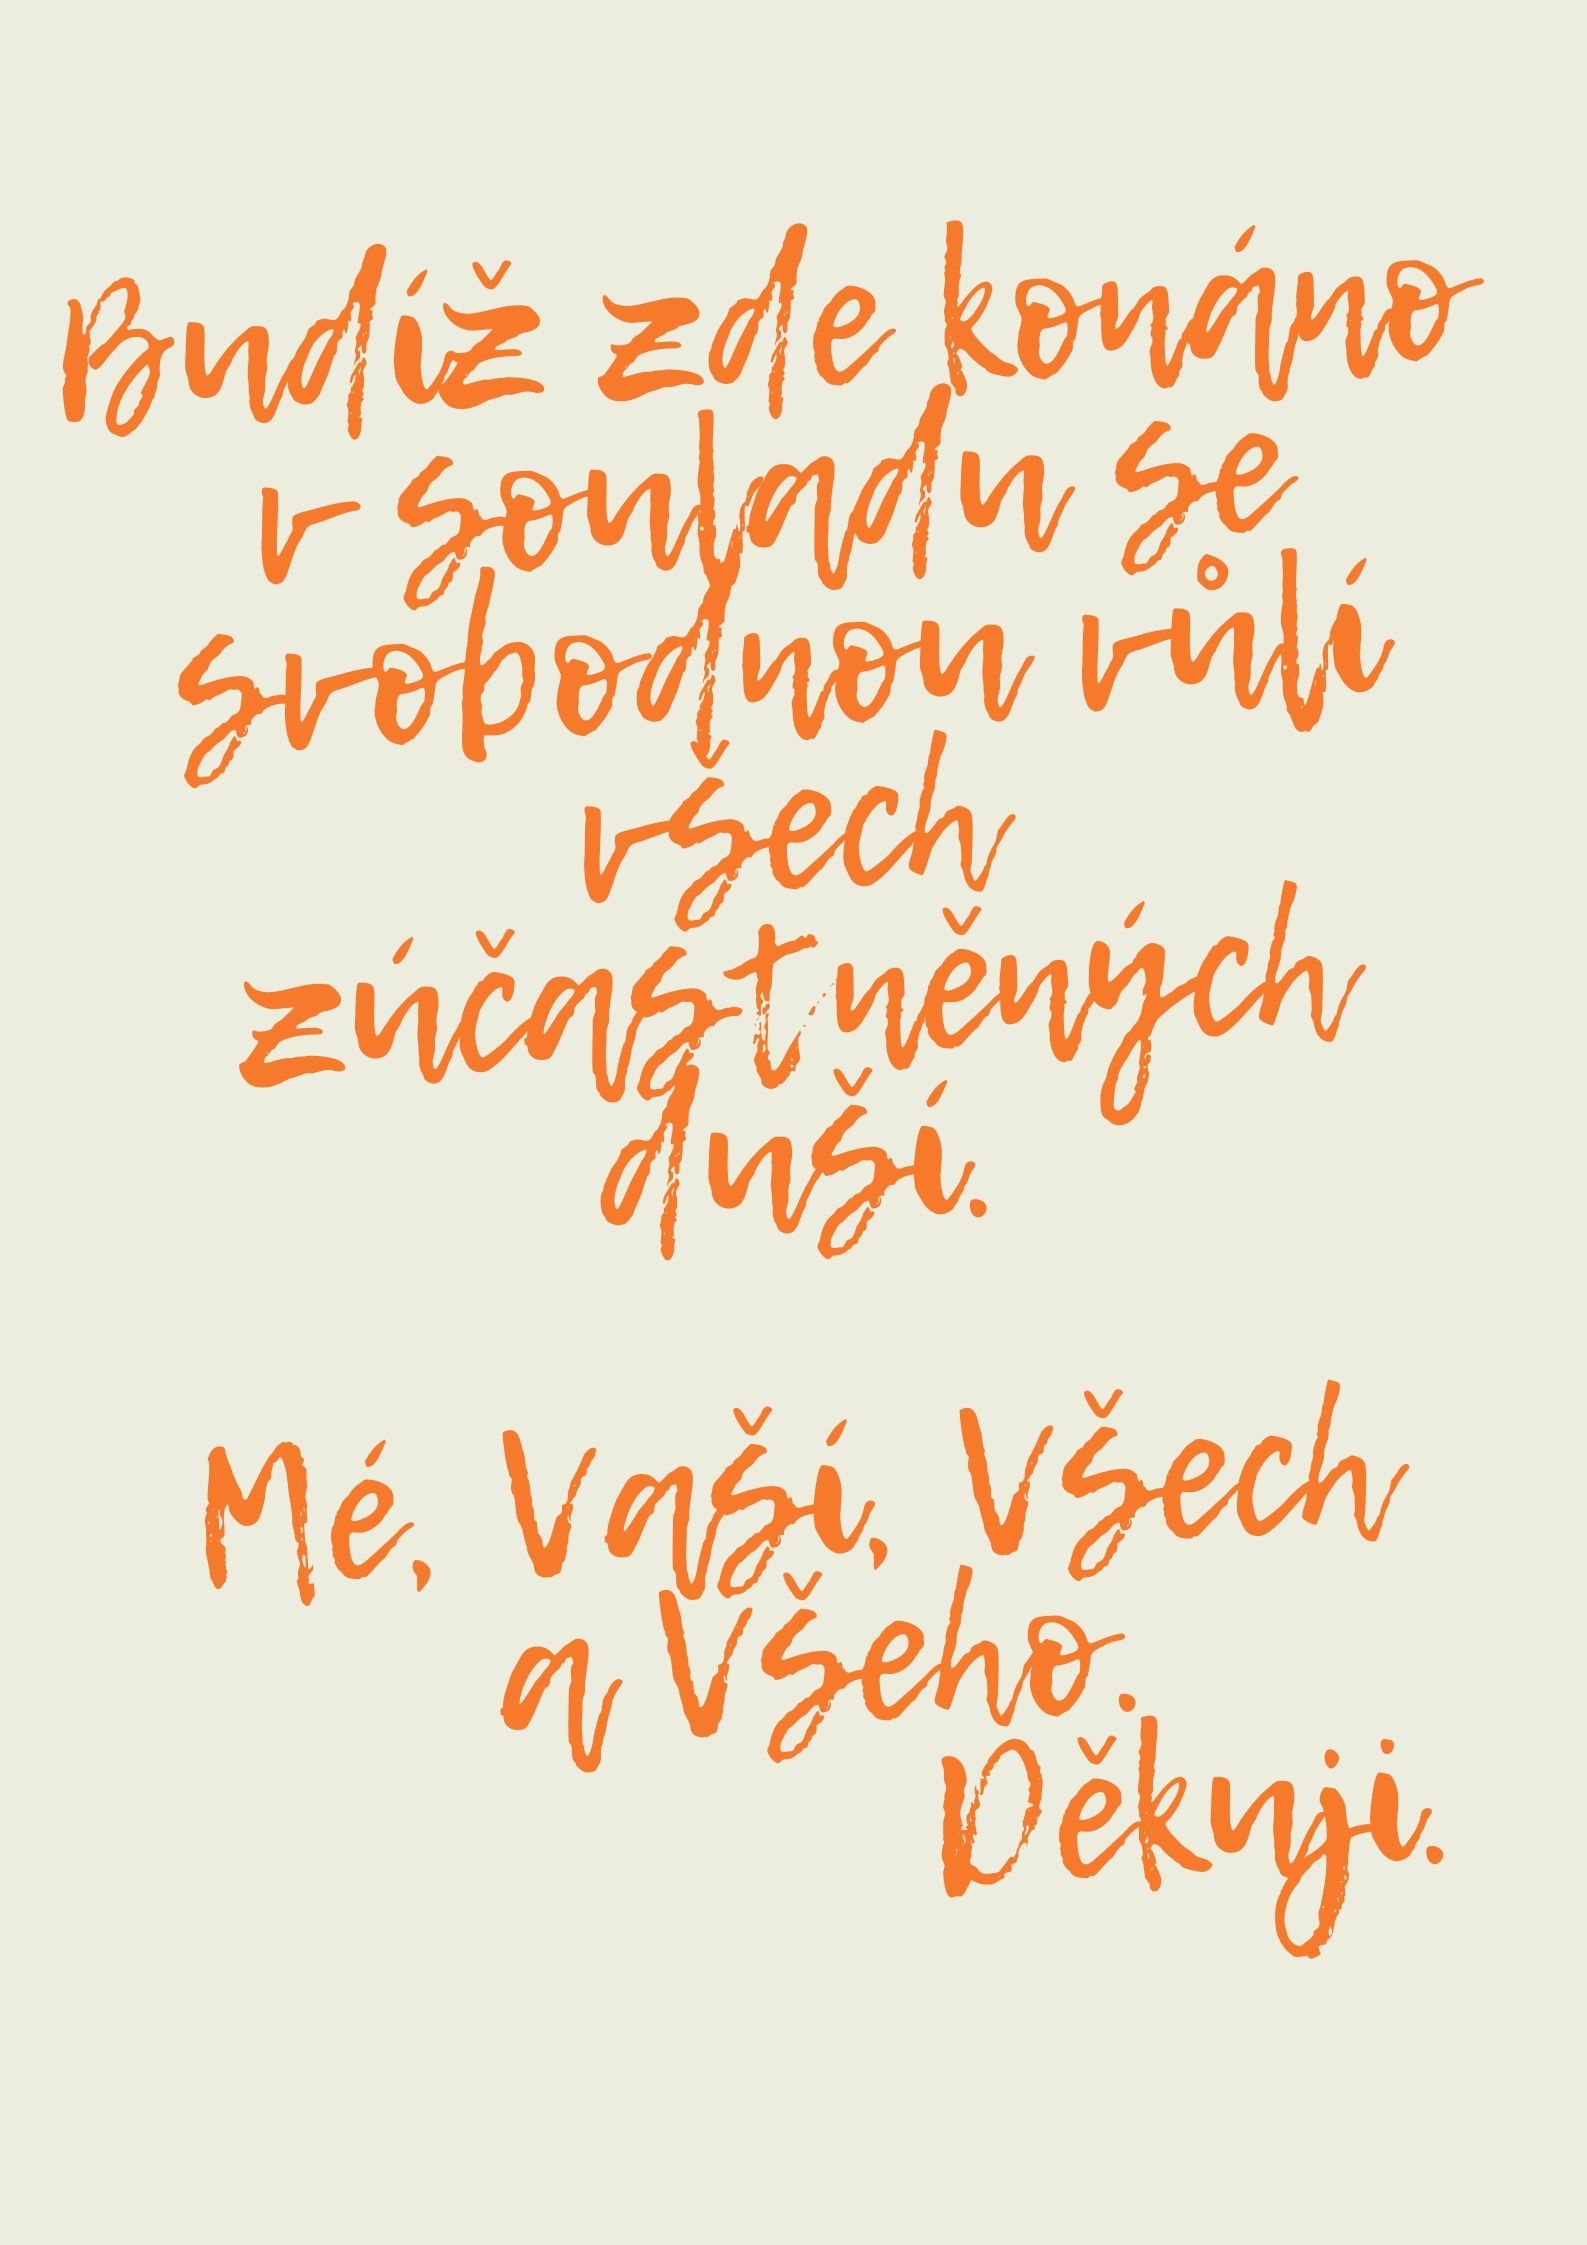 Budíž zde konáno
v souladu se
svobodnou vůlí
všech
zúčastněných
duší.
Mé, Vaší, Všech
a Všeho.
Děkuji.